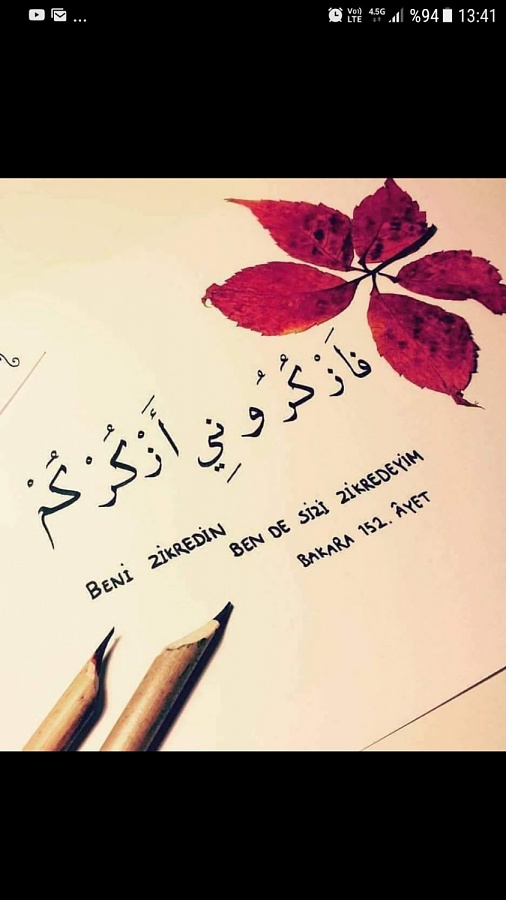 ... Vo)) LTE 4.5G %94 13:41
فَازْكُرُونِي أَزْكُرْكُمْ
BENİ ZİKREDİN BEN DE SİZİ ZİKREDEYİM
BAKARA 152. ÂYET